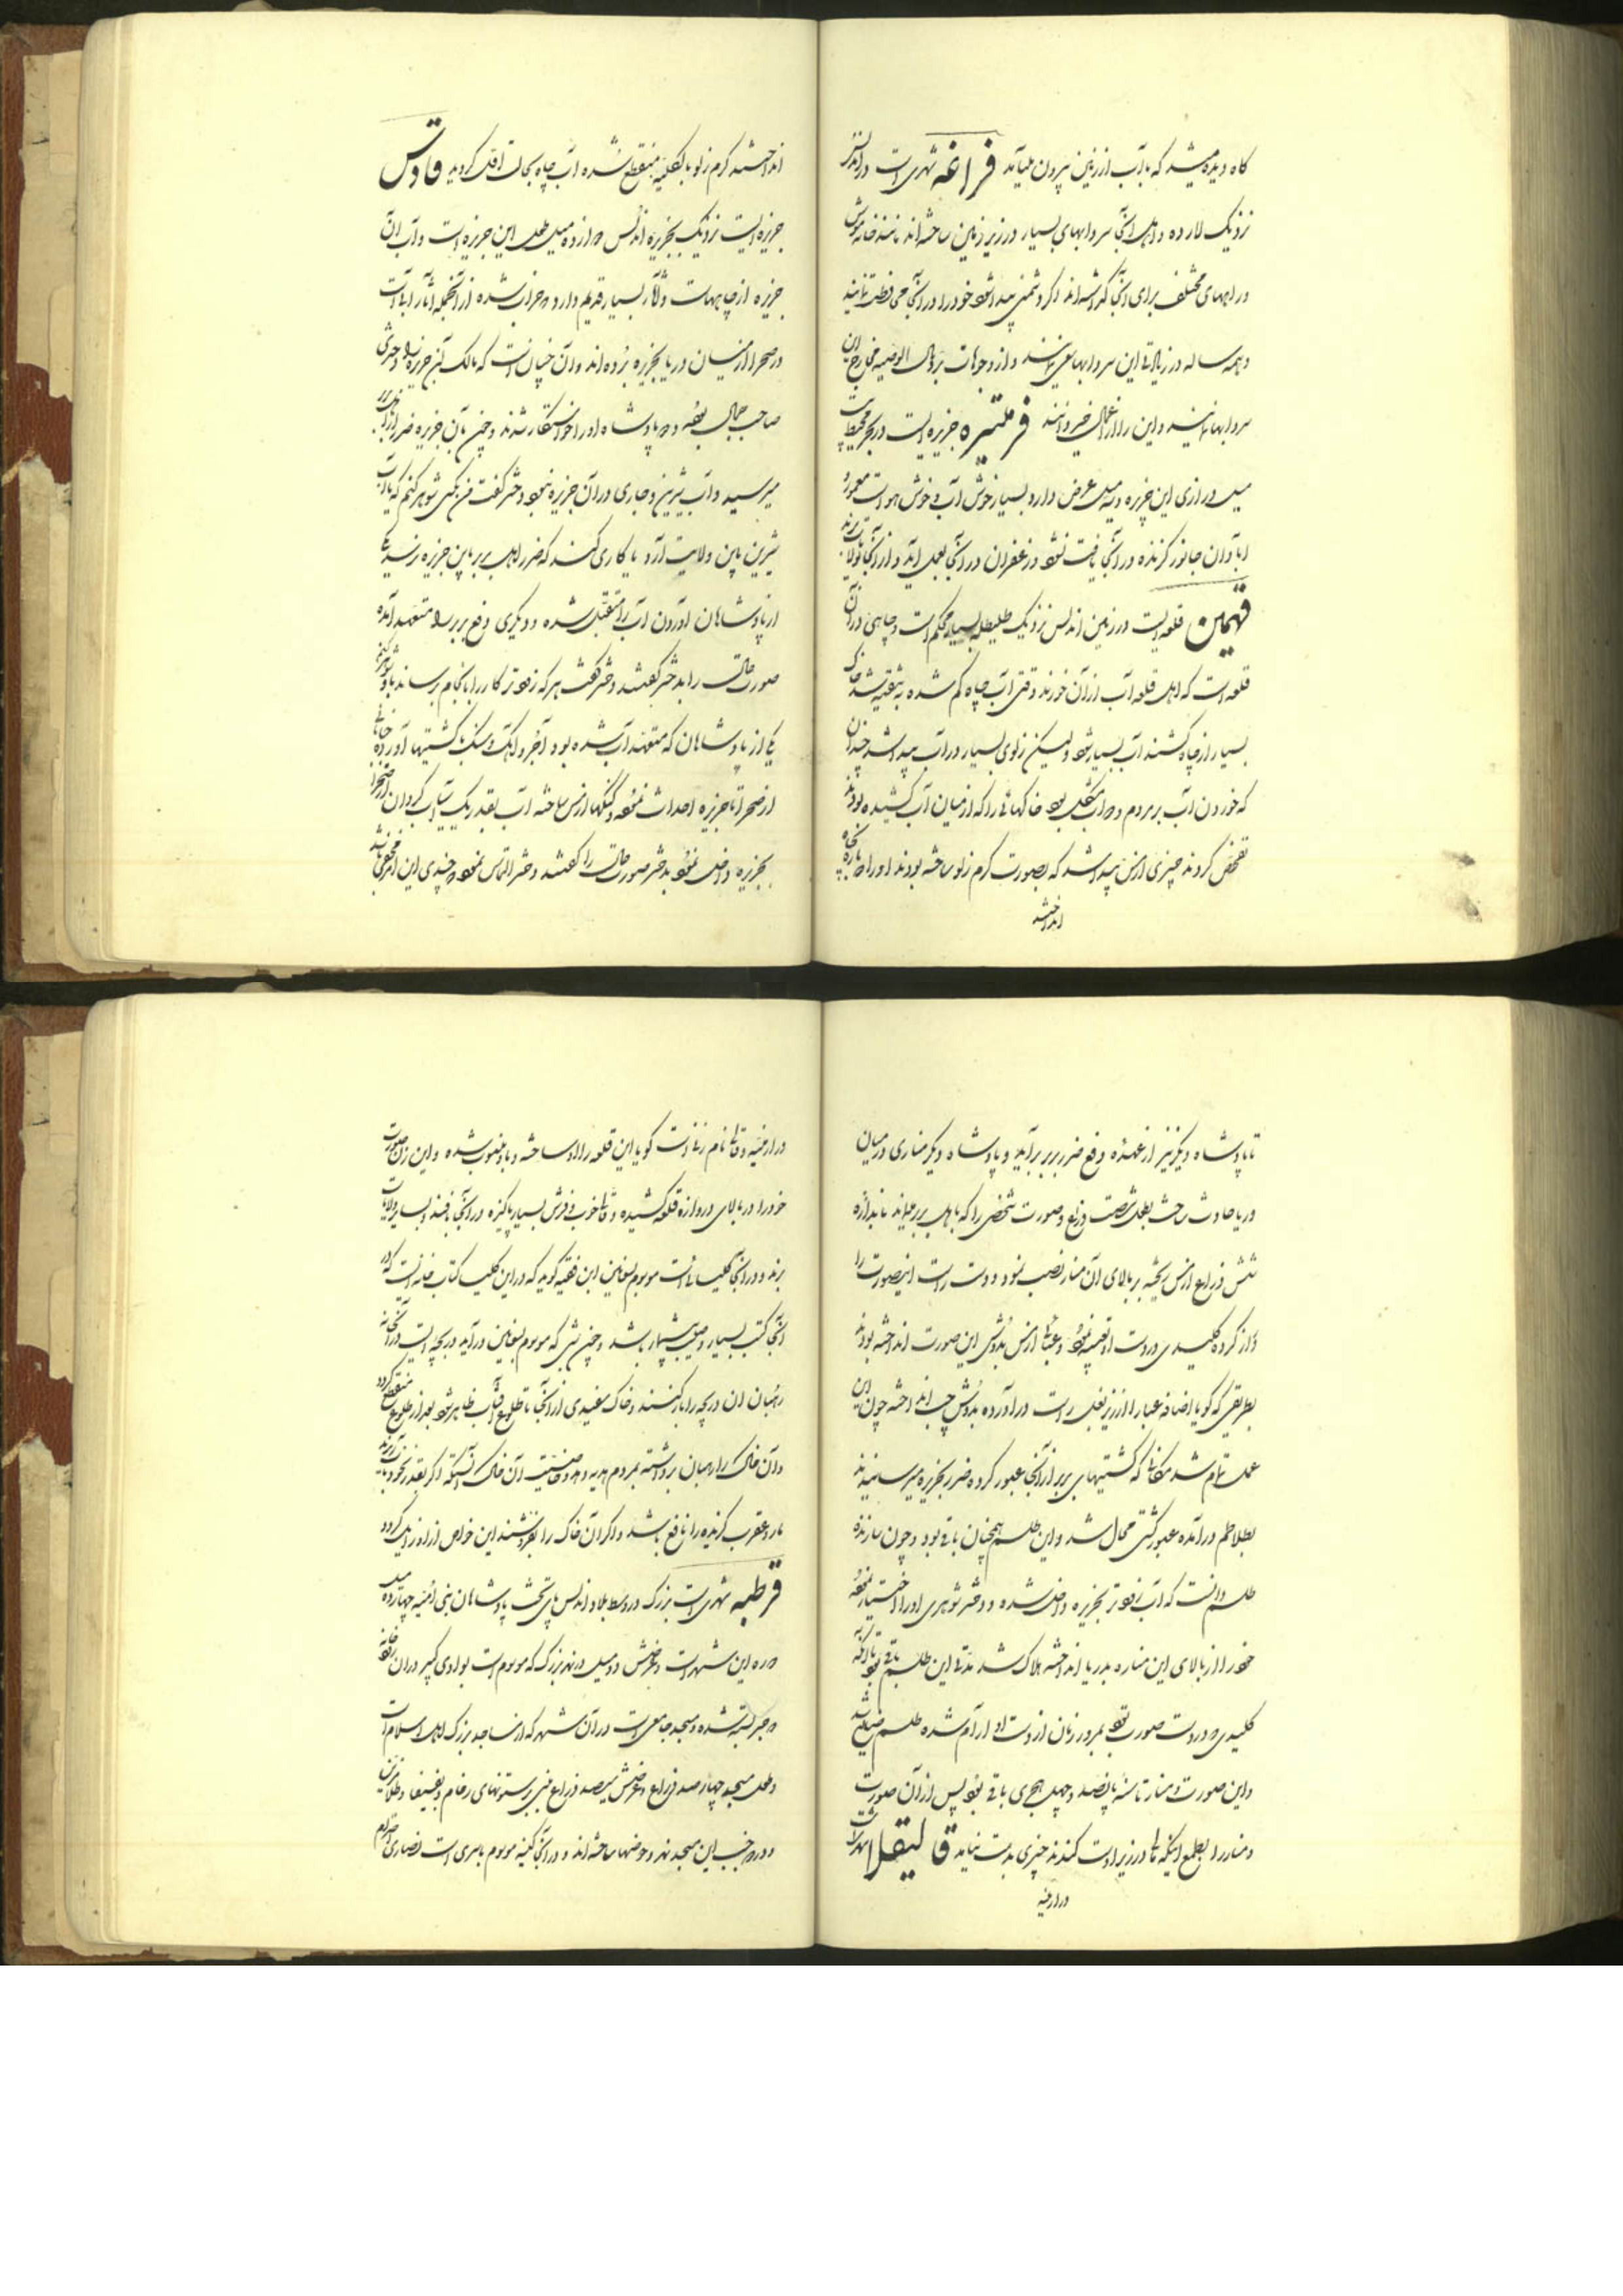 کاه دیده میشد که با آب از زمین بیرون میآمد فراغه شهری است در اندلس
نزدیک لارده و اهل آنجا سردابهای بسیار در زیر زمین ساخته‌اند مانند خانه موش
و راههای مختلف برای آنجا گذاشته‌اند اگر دشمنی پیدا شود خود را در آنجا محافظت نمایند
و همه ساله در زیادتی این سردابها سعی نمایند و از وجوهات بر و مال الوصیه مخارج آن
سردابها نمایند و این را از اعمال خیر دانند فرمنتیره جزیره ایست در بحر محیط
میل درازی این جزیره و سه میل عرض دارد بسیار خوش آب و خوش هواست معموره
آبادان جانور گزنده در آنجا یافت نشود و زعفران در آنجا بعمل آید و از آنجا بولایات برند
قهمین قلعه ایست در زمین اندلس نزدیک طلیطله بسیار محکم است و چاهی در آن
قلعه است که اهل قلعه آب از آن خورند وقتی آب چاه کم شده به تنقیه شد خاک
بسیار از چاه کشند آب بسیار شود ولیکن زلوی بسیار در آب پیدا شد چندان
که خوردن آب بر مردم و دواب مشکل بود خاکهائی را که از میان آب کشیده بودند
تفحص کردند چیزی از مس پیدا شد که بصورت کرم زلو ساخته بودند او را دوباره بچاه
انداختند
انداختند کرم زلو بالکلیه منقطع شده آب چاه بحالت اول گردید قادس
جزیره ایست نزدیک بجزیره اندلس دوازده میل طول این جزیره است و آب آن
جزیره از چاههاست و آثار بسیار قدیم دارد و خراب شده از آنجمله آثار آبیست
در صحرا از میان دریا بجزیره برده‌اند و آن چنان است که مالک آن جزیره را دختری
صاحب جمال بوده و پادشاه او را خواستگار شدند و چون بآن جزیره ضرر از اهل بربر
میرسید و آب شیرین و جاری در آن جزیره نبود دختر گفت من بکسی شوهر کنم که یا آب
شیرین باین ولایت آرد یا کاری کند که ضرر اهل بربر باین جزیره نرسد یکی
از پادشاهان آوردن آب را متقبل شده و دیگری دفع بربر را متعهد آمده
صورت حالت را بدختر گفتند دختر گفت هر که زودتر کار را بانجام برساند باو شوهر کنم
یکی از پادشاهان که متعهد آب شده بود آجر و آهک و سنگ با کشتیها آورده
از صحرا تا جزیره احداث نموده و گنگها از مس ساخته آب بقدر یک آسیاب گردان از صحرا
بجزیره داخل نمود بدختر صورت حالت را گفتند دختر التماس نمود چندی این امر مخفی باشد
تا پادشاه دیگر نیز از عهده دفع ضرر بربر برآید و پادشاه دیگر مناری در میان
دریا حادث ساخت بطول شصت ذراع و صورت شخصی را که باهل بربر میماند باندازه
شش ذراع از مس ریخته بر بالای آن منار نصب نمود و دست راست اینصورت را
دراز کرده کلیدی در دست او تعبیه نموده و عبائی از مس بدوش این صورت انداخته بودند
بطریقی که گویا اضافه عبا را از زیر بغل راست درآورده بدوش چپ انداخته چون این
عمل تمام شد مکانی که کشتیهای بربر از آنجا عبور کرده ضرر بجزیره میرسانیدند
بطلاطم درآمده عبور کشتی محال شد و این طلسم همچنان باقی بود و چون سازنده
طلسم دانست که آب زودتر بجزیره داخل شده و دختر شوهری او را اختیار نموده
خود را از بالای این مناره بدریا انداخته هلاک شد مدتی این طلسم باقی بود تا آنکه
کلیدی که در دست صورت بود بمرور زمان از دست او آرام شده طلسم ضایع شد
و این صورت و منار تا سنه پانصد و چهل هجری باقی بود پس از آن صورت
و منار را بطمع اینکه مالی در زیر او است کندند چیزی بدست نیامد قالیقلا شهریست
در ارمنیه
در ارمنیه و قالی نام زنی است گویا این قلعه را او ساخته و باو منسوب شده و این زن صورت
خود را در بالای دروازه قلعه کشیده و قالی خوب و فرش بسیار پاکیزه در آنجا بافند و بسایر ولایات
برند و در آنجا کلیسائی است موسوم بیعانین ابن فقیه گوید که در این کلیسا کتاب خانه ایست که در
آنجا کتب بسیار و صلیب بیشمار باشد و چون شبی که موسوم بیعانین درآید دریچه ایست در آنخانه
رهبان آن دریچه را باز کنند و خاک سفیدی از آنجا تا طلوع آفتاب ظاهر شود بعد از طلوع منقطع گردد
و آن خاک را رهبان برداشته بمردم هدیه دهد و خاصیت آن خاک آنستکه اگر بقدر نخود بآب برند
مار و عقرب گزیده را نافع باشد و اگر آن خاک را بفروشند این خواص از او زایل گردد
قرطبه شهری است بزرگ در وسط بلاد اندلس پای تخت پادشاهان بنی امیه چهارده میل
دوره این شهر است و عرضش دو میل در نهر بزرگ که موسوم است بوادی کبیر در آن واقع
و جسر بسته شده و مسجد جامعی است در آن شهر که از مساجد بزرگ اهل اسلام است
و طول مسجد چهارصد ذراع و عرضش سیصد ذراع مبنی بر ستونهای رخام و بفسیفسا و طلا مزین
و در جنب این مسجد نهر و حوضها ساخته‌اند و در آنجا کنیسه موسوم باسری است نصاری احترام